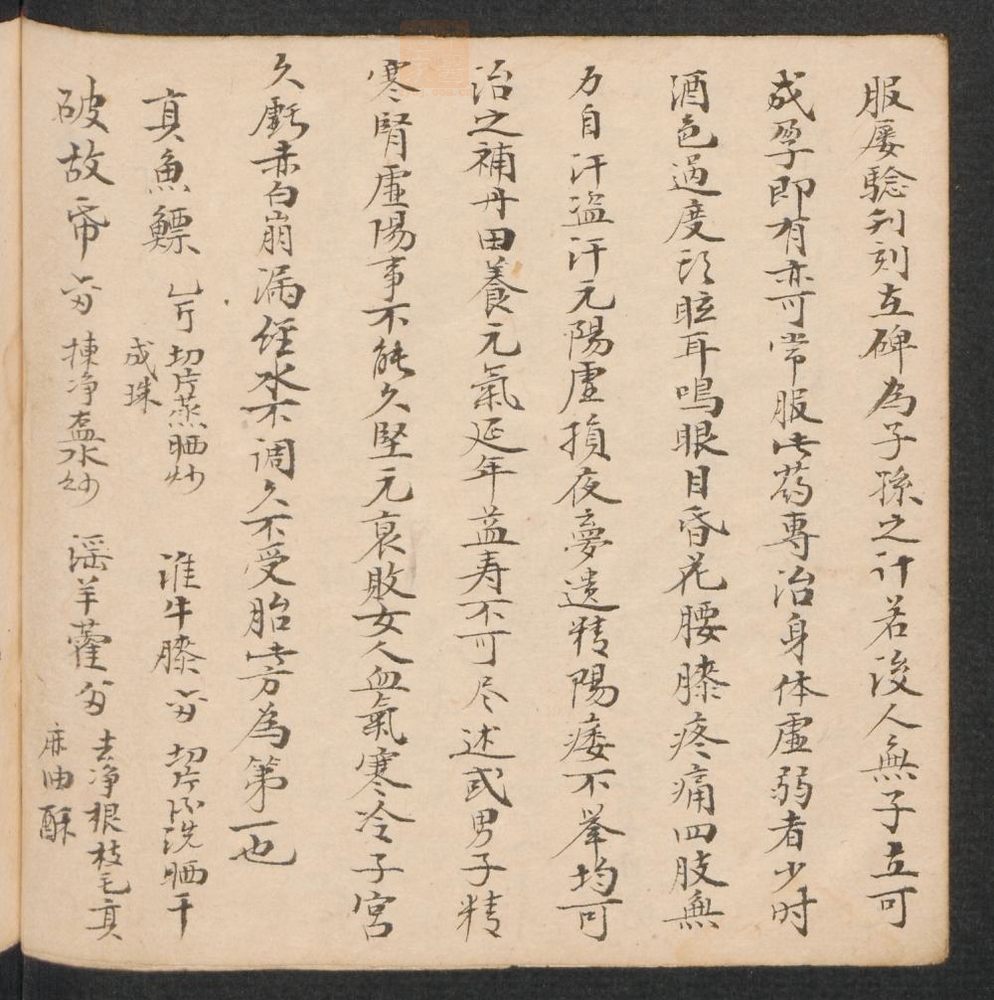 服屡騐刋刻立碑為子孫之计若後人無子立可
成孕即有亦可常服此药專治身体虛弱者少时
酒色過度頭眩耳鳴眼目昏花腰膝疼痛四肢無
力自汗盗汗元陽虛損夜夢遺精陽痿不举均可
治之補丹田養元氣延年益寿不可尽述或男子精
寒腎虛陽事不能久堅元衰敗女人血氣寒冷子宮
久虧赤白崩漏经水不调久不受胎此方為第一也
真魚鰾 乙斤 切片蒸晒炒成珠 淮牛膝 切片洗晒干
破故帋 揀净盐水炒 淫羊藿 去净根枝毛真麻油酥